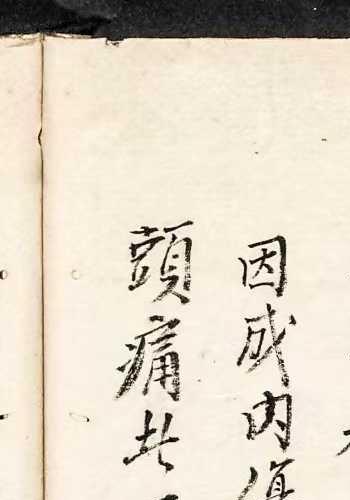 因成内傷
頭痛此